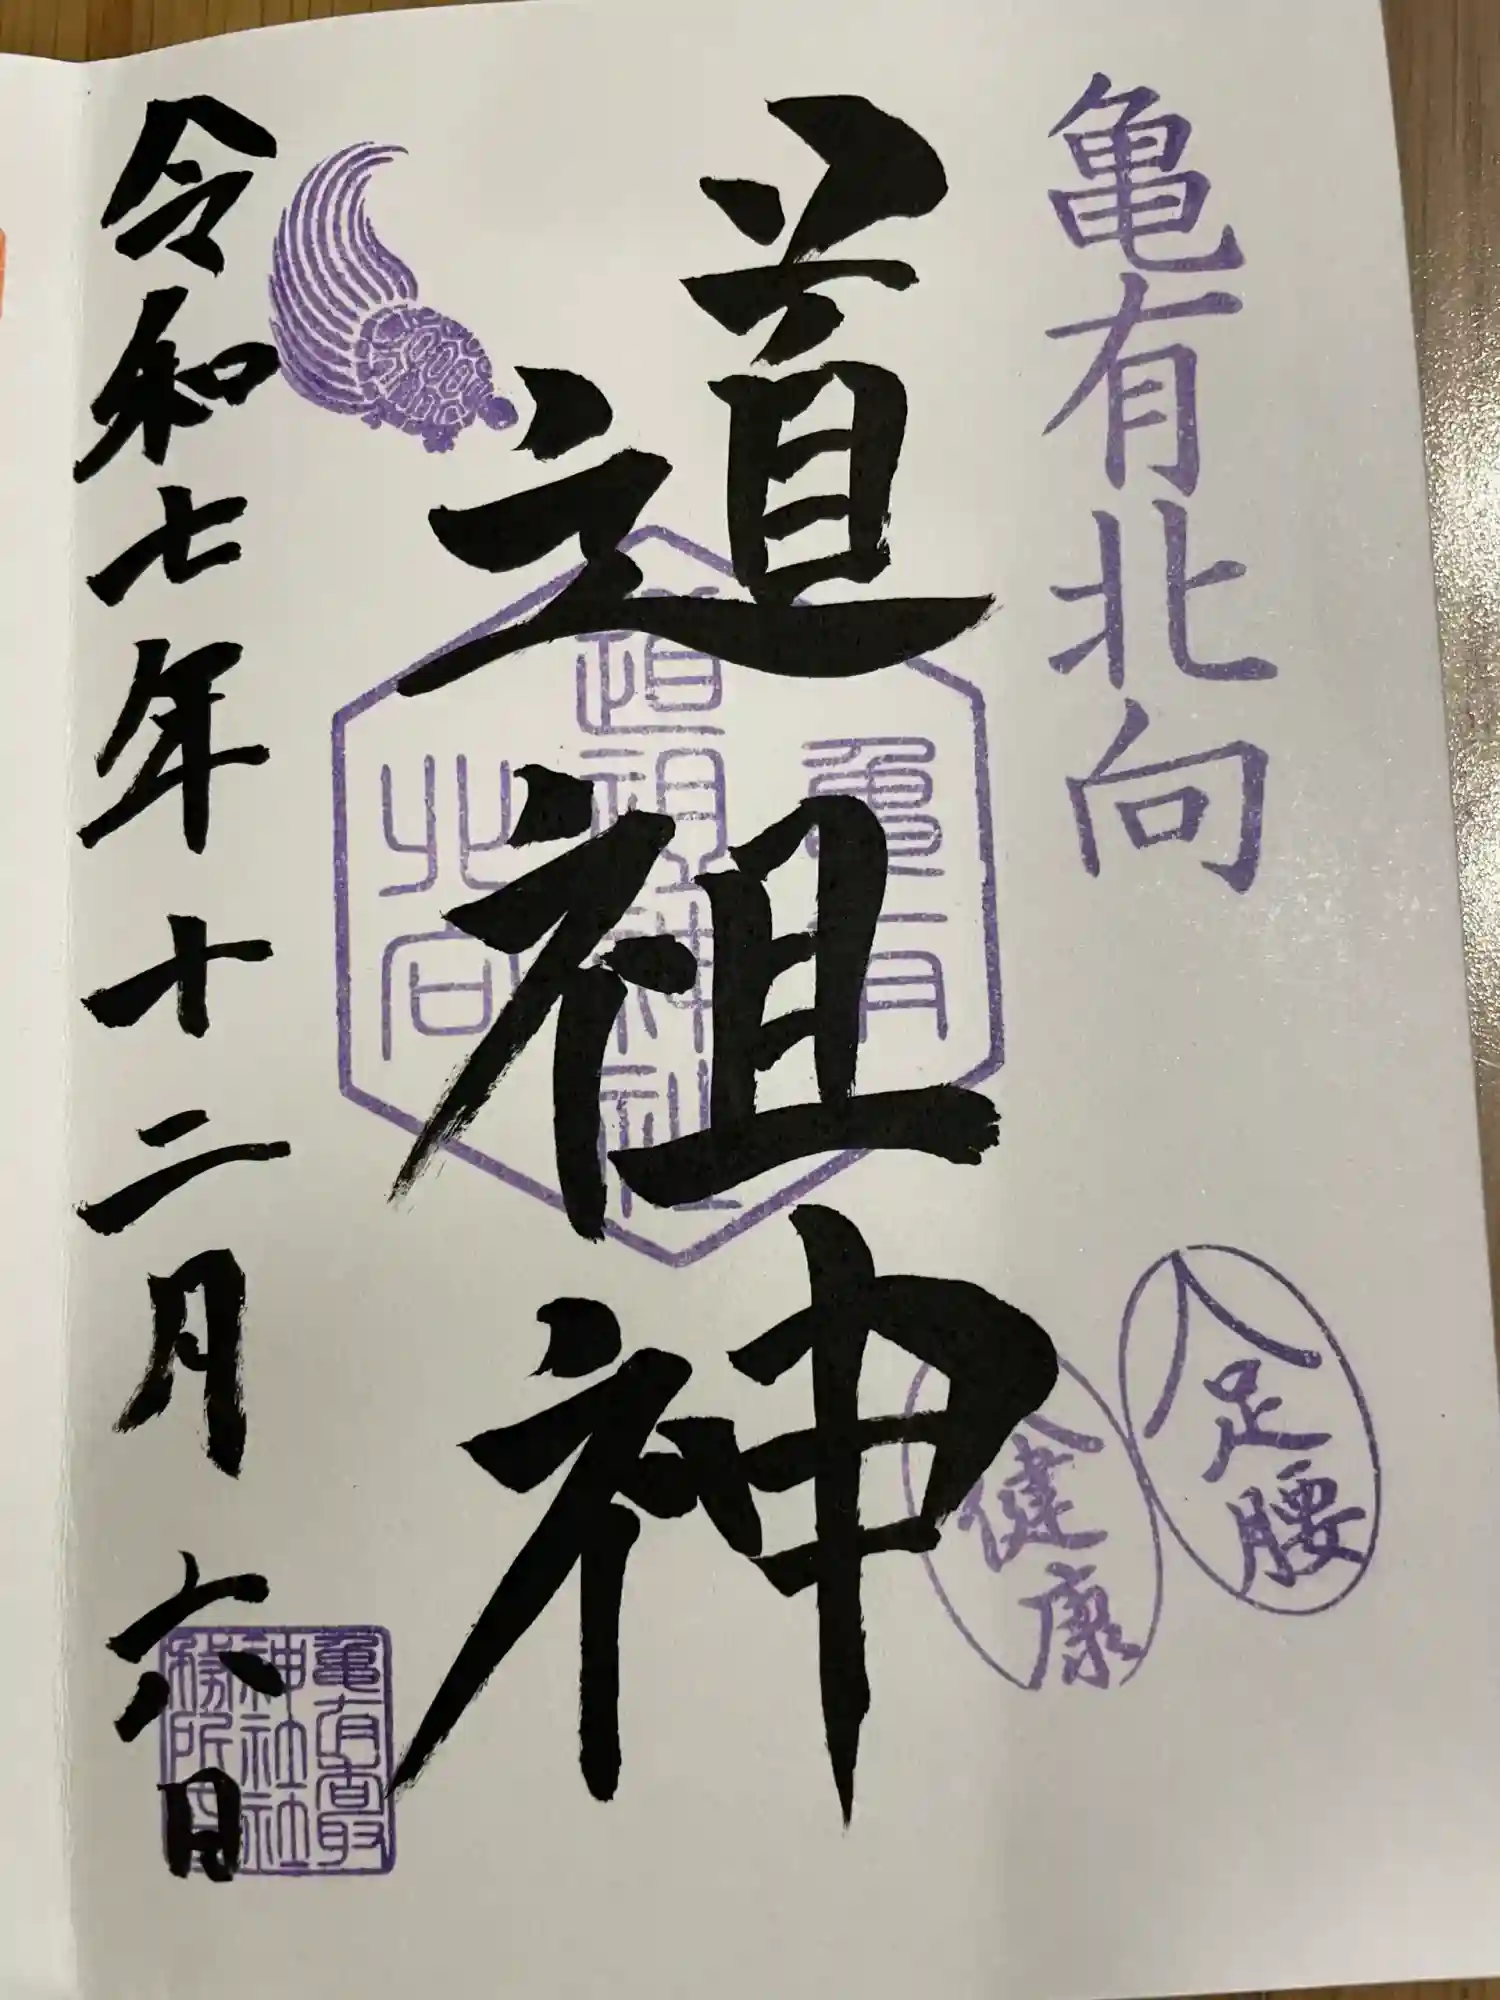 亀有北向
足腰
健康
道祖神
亀有
道祖神社
北向
令和七年十二月六日
亀有香取
神社社
務所